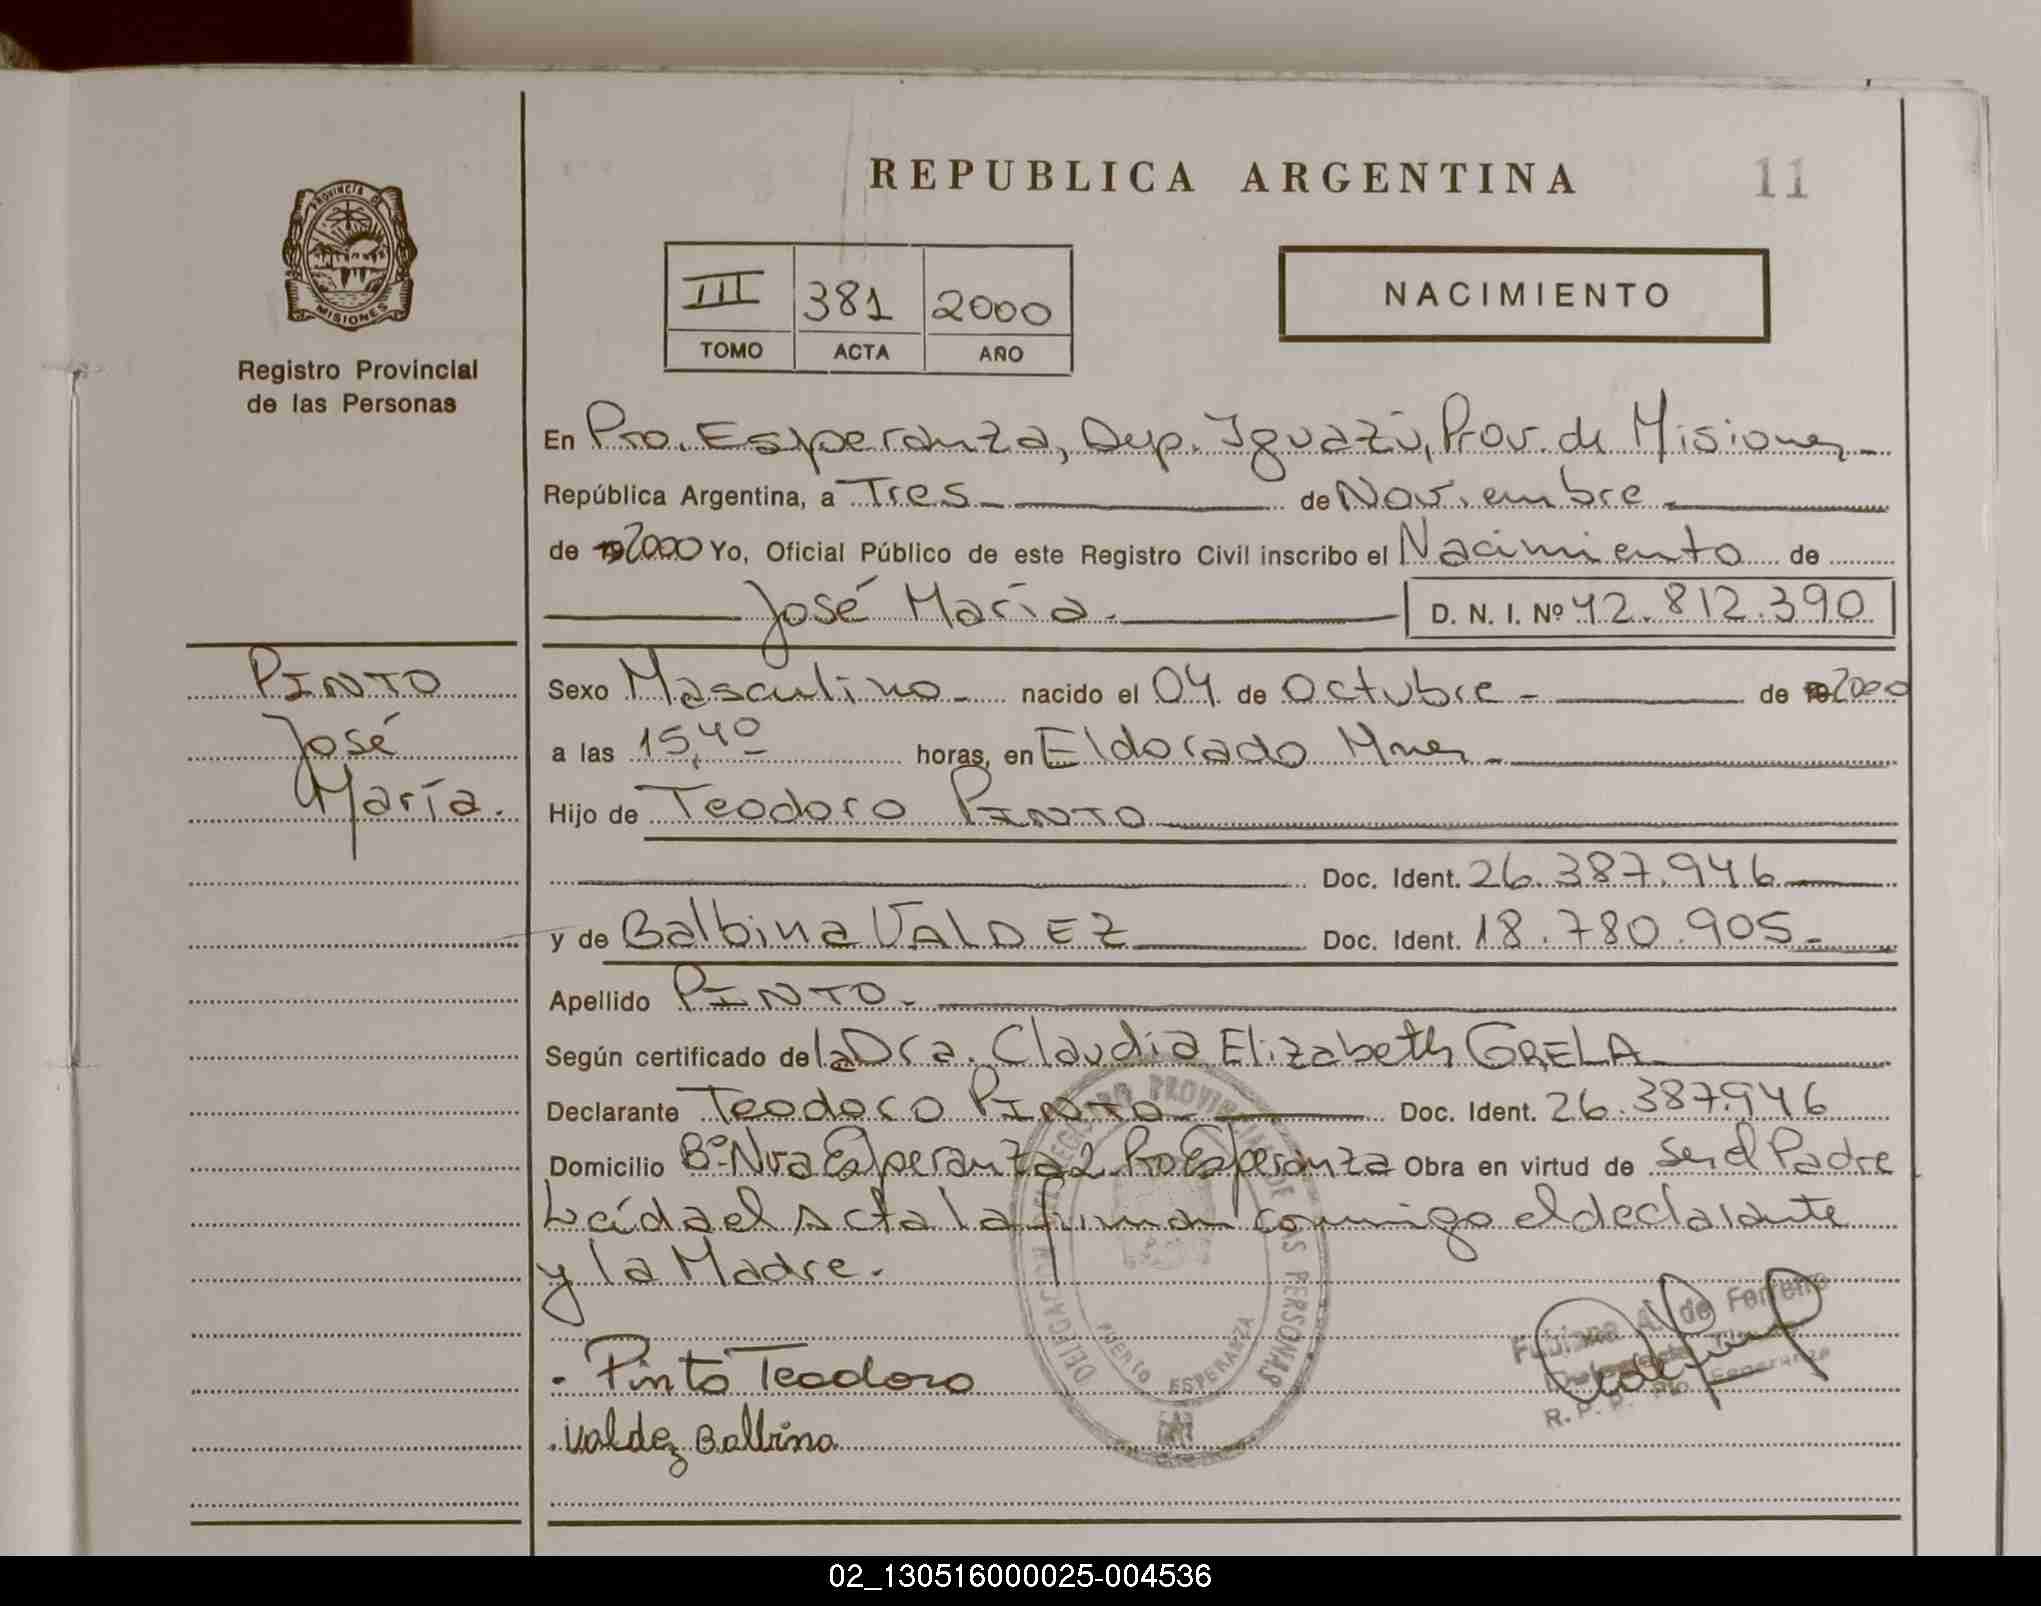 REPUBLICA ARGENTINA
11
PROVINCIA DE
MISIONES
Registro Provincial
de las Personas
III 381 2000
TOMO ACTA AÑO
NACIMIENTO
En Pto. Esperanza, Dep. Iguazú, Prov. de Misiones
República Argentina, a Tres de Noviembre
de 2000 Yo, Oficial Público de este Registro Civil inscribo el Nacimiento de
José María. D. N. I. Nº 42.812.390
PINTO
José
María.
Sexo Masculino nacido el 04 de Octubre de 2000
a las 15,40 horas, en Eldorado Mnes
Hijo de Teodoro PINTO
Doc. Ident. 26.387.946
y de Balbina VALDEZ Doc. Ident. 18.780.905
Apellido PINTO.
Según certificado de la Dra. Claudia Elizabeth GRELA
Declarante Teodoro PINTO Doc. Ident. 26.387.946
Domicilio Bº Nva Esperanza 2 Pto Esperanza Obra en virtud de ser el Padre
Leída el Acta la firman conmigo el declarante
y la Madre.
REGISTRO PROVINCIAL DE LAS PERSONAS
PUERTO ESPERANZA
Pinto Teodoro
Valdez Balbina
de Ferreiro
Pto. Esperanza
R. P. P.
02_130516000025-004536